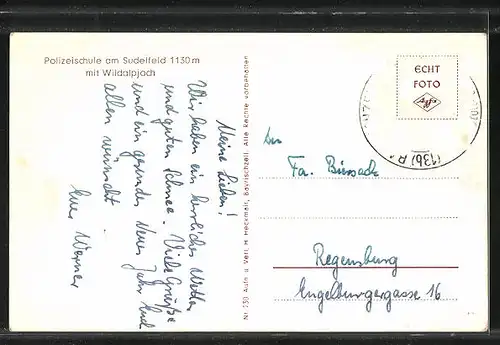 Polizeischule am Sudelfeld 1130 m
mit Wildalpjoch
Meine Lieben!
Wir haben ein herrliches Wetter
und guten Schnee. Viele Grüße
und ein gesundes Neues Jahr Euch
allen wünscht
Euer Werner
Nr. 230 Aufn. u. Verl. H. Heckmair, Bayrischzell. Alle Rechte vorbehalten
ECHT
FOTO
Agfa
(13b)
Fa.
Regensburg
Engelburgergasse 16